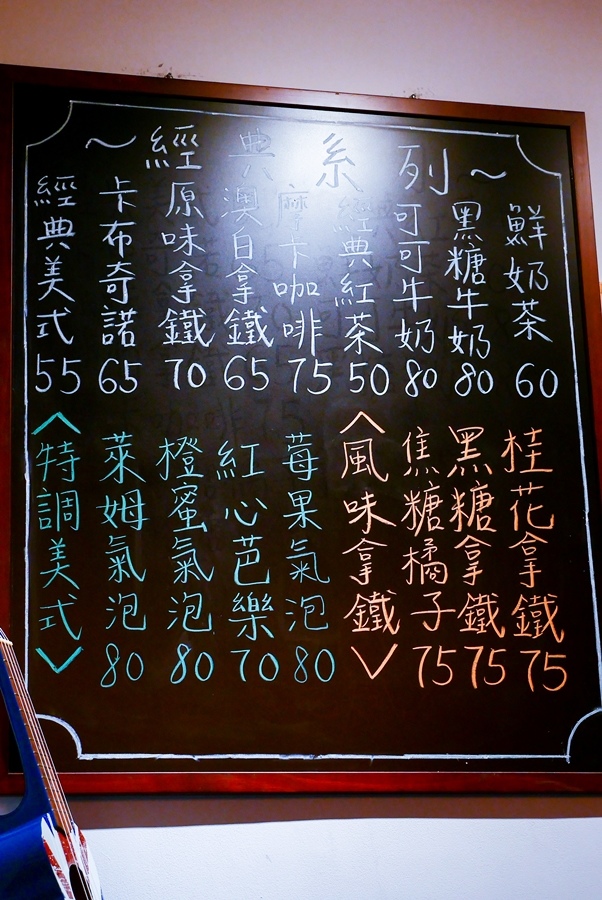 ～經典系列～
經典美式 55
卡布奇諾 65
原味拿鐵 70
澳白拿鐵 65
摩卡咖啡 75
經典紅茶 50
可可牛奶 80
黑糖牛奶 80
鮮奶茶 60
＜特調美式＞
萊姆氣泡 80
橙蜜氣泡 80
紅心芭樂 70
莓果氣泡 80
＜風味拿鐵＞
焦糖橘子 75
黑糖拿鐵 75
桂花拿鐵 75